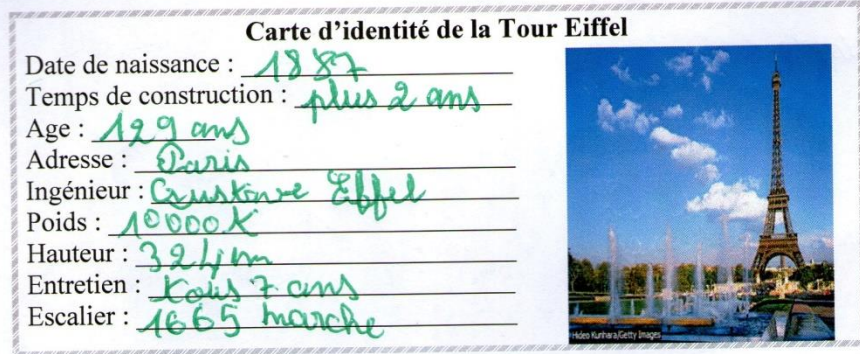 Carte d'identité de la Tour Eiffel
Date de naissance : 1887
Temps de construction : plus 2 ans
Age : 129 ans
Adresse : Paris
Ingénieur : Gustave Eiffel
Poids : 10000 K
Hauteur : 324 m
Entretien : tous 7 ans
Escalier : 1665 marche
Hideo Kurihara/Getty Images